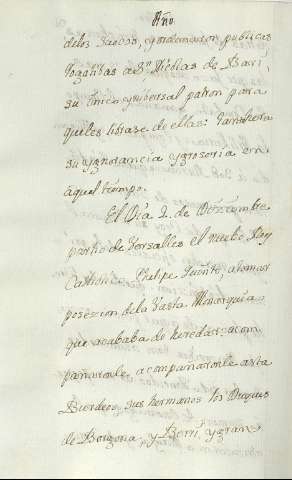 Año
delos Suevos, y ordenaron publicas
Rogatibas a Sn. Nicolas de Bari,
su único y unibersal patron para
que les librase de ellas: tanta era
su ygnorancia y groseria en
aquel tiempo.
El Dia 2. de Deziembre
partio de Versalles el nuebo Rey
Catholico Phelipe Quinto, a tomar
posesion de la Vasta Monarquia
que acababa de heredar: acom
pañaronle acompañaronle asta
Burdeos, sus hermanos los Duques
de Borgoña, y Berri, y gran